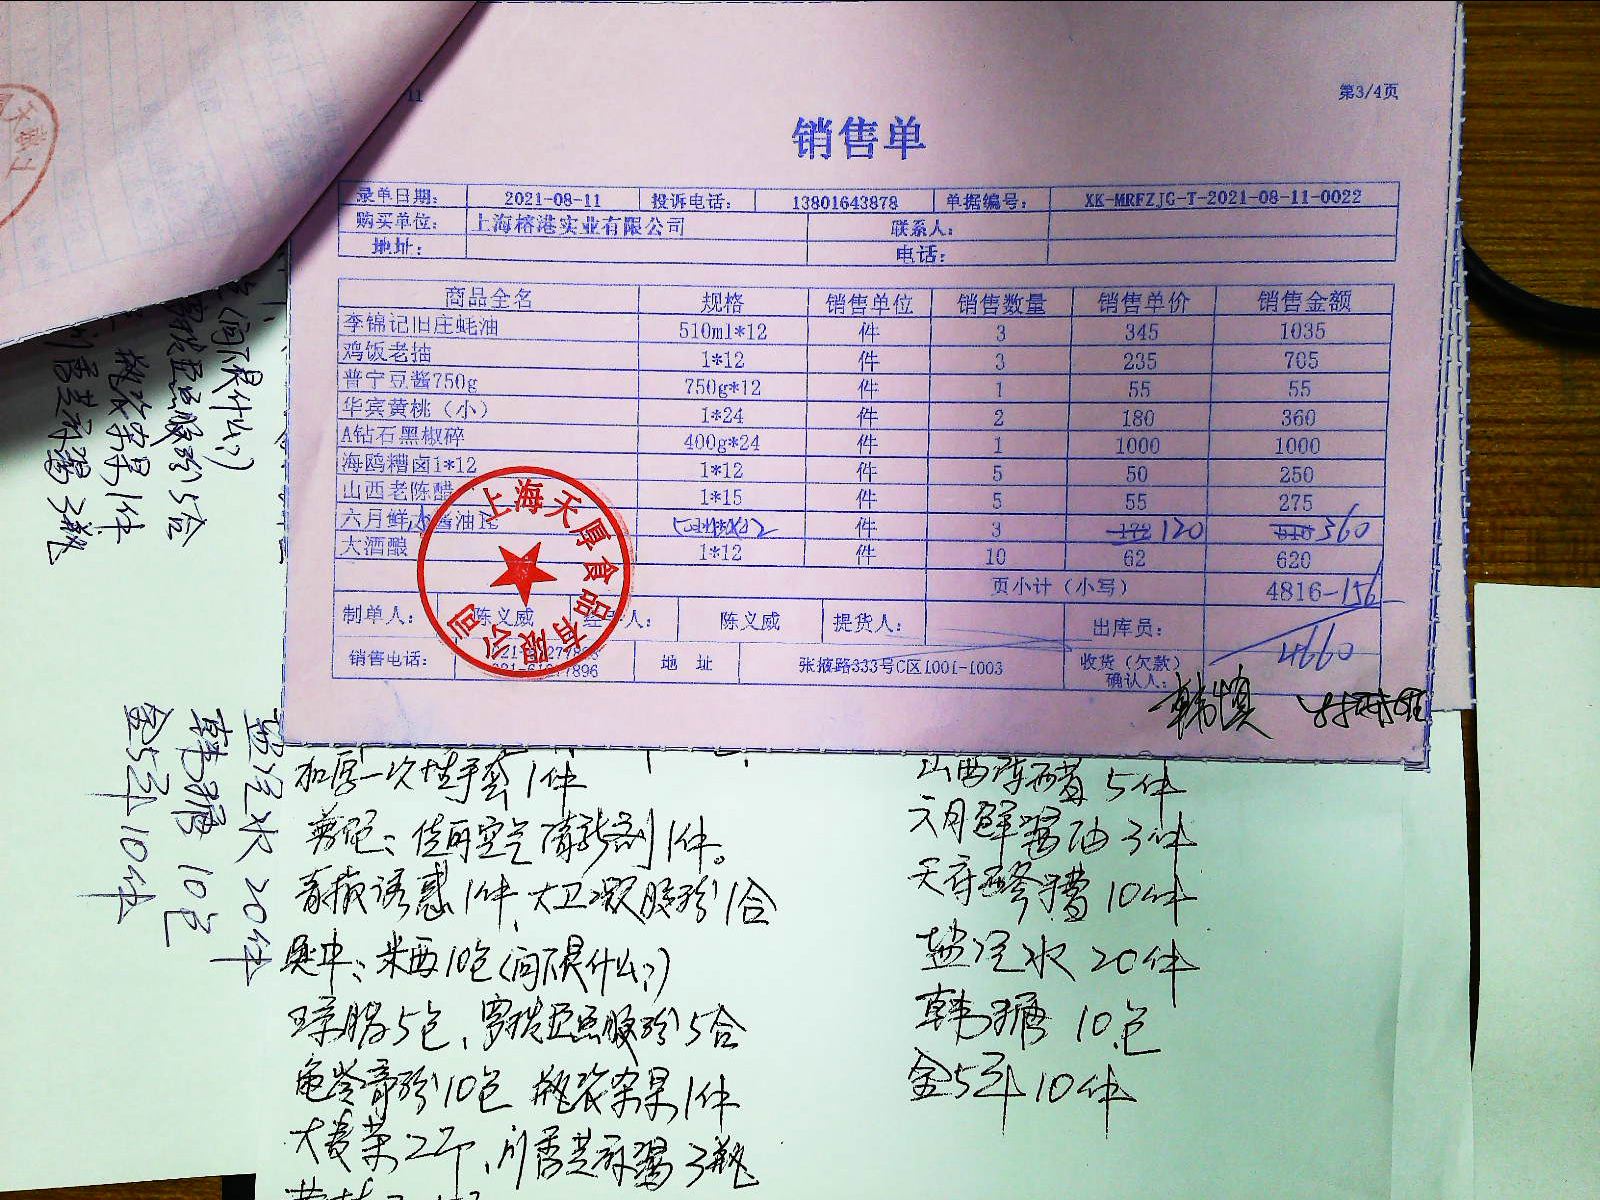 第3/4页
销售单
录单日期: 2021-08-11 投诉电话: 13801643878 单据编号: XK-MRFZJG-T-2021-08-11-0022
购买单位: 上海榕港实业有限公司 联系人:
地址: 电话:
商品全名 规格 销售单位 销售数量 销售单价 销售金额
李锦记旧庄蚝油 510ml*12 件 3 345 1035
鸡饭老抽 1*12 件 3 235 705
普宁豆酱750g 750g*12 件 1 55 55
华宾黄桃（小） 1*24 件 2 180 360
A钻石黑椒碎 400g*24 件 1 1000 1000
海鸥糟卤1*12 1*12 件 5 50 250
山西老陈醋 1*15 件 5 55 275
六月鲜 酱油 件 3 120 360
大酒酿 1*12 件 10 62 620
页小计（小写） 4816-156
4660
制单人: 陈义威 陈义威 提货人: 出库员:
销售电话: 地 址 张掖路333号C区1001-1003 收货（欠款）
确认人:
上海天厚食品有限公司
加厚一次性手套1件
空气清新剂1件。
诱惑1件、大卫 胶粉1合
米西10包(问不是什么?)
5包、 胶粉5合
龟苓膏粉10包 瓶装杂果1件
大麦茶2 、 香芝麻酱3瓶
山西陈醋 5件
六月鲜酱油 3件
天府 糟 10件
盐汽水 20件
韩 糖 10包
金5 10件
盐汽水 20件
韩 糖 10包
金5 10件
(问不是什么?)
胶粉5合
瓶装杂果1件
香芝麻酱3瓶